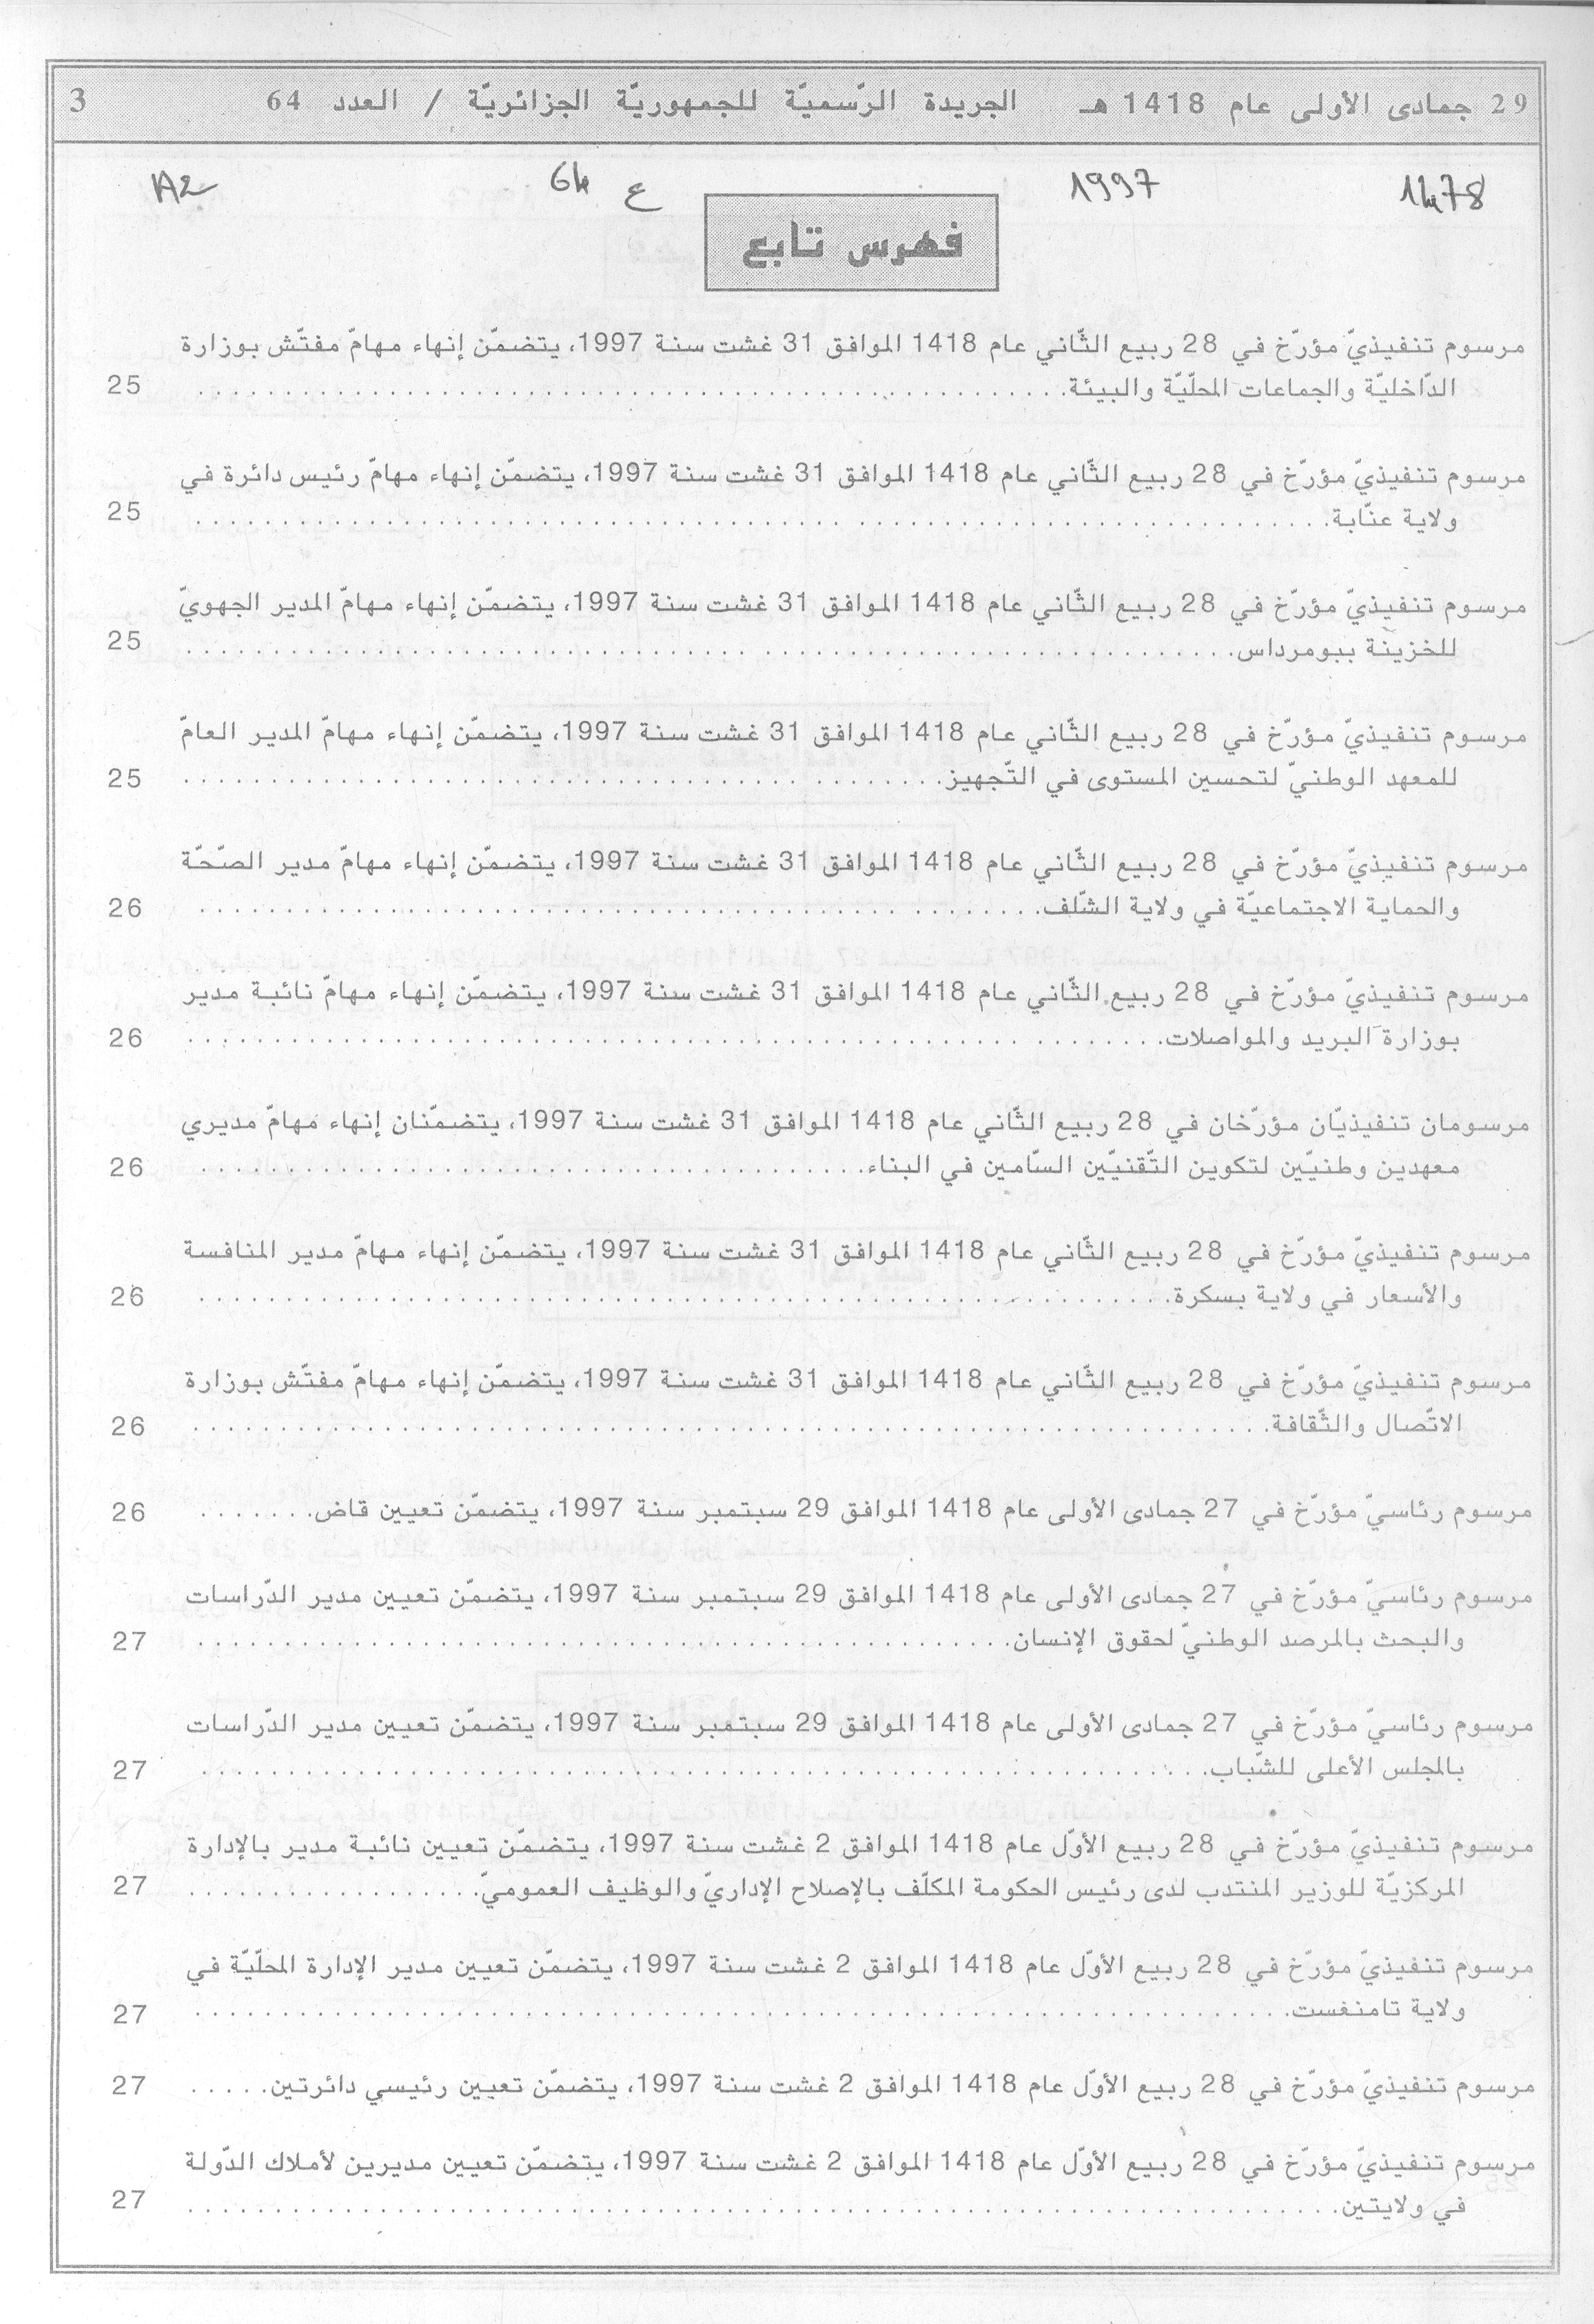 29 جمادى الأولى عام 1418 هـ الجريدة الرّسميّة للجمهوريّة الجزائريّة / العدد 64 3
1997 ع 64
فهرس تابع
مرسوم تنفيذيّ مؤرّخ في 28 ربيع الثّاني عام 1418 الموافق 31 غشت سنة 1997، يتضمّن إنهاء مهامّ مفتّش بوزارة
الدّاخليّة والجماعات المحلّيّة والبيئة. 25
مرسوم تنفيذيّ مؤرّخ في 28 ربيع الثّاني عام 1418 الموافق 31 غشت سنة 1997، يتضمّن إنهاء مهامّ رئيس دائرة في
ولاية عنّابة. 25
مرسوم تنفيذيّ مؤرّخ في 28 ربيع الثّاني عام 1418 الموافق 31 غشت سنة 1997، يتضمّن إنهاء مهامّ المدير الجهويّ
للخزينة ببومرداس. 25
مرسوم تنفيذيّ مؤرّخ في 28 ربيع الثّاني عام 1418 الموافق 31 غشت سنة 1997، يتضمّن إنهاء مهامّ المدير العامّ
للمعهد الوطنيّ لتحسين المستوى في التّجهيز. 25
مرسوم تنفيذيّ مؤرّخ في 28 ربيع الثّاني عام 1418 الموافق 31 غشت سنة 1997، يتضمّن إنهاء مهامّ مدير الصّحّة
والحماية الاجتماعيّة في ولاية الشّلف. 26
مرسوم تنفيذيّ مؤرّخ في 28 ربيع الثّاني عام 1418 الموافق 31 غشت سنة 1997، يتضمّن إنهاء مهامّ نائبة مدير
بوزارة البريد والمواصلات. 26
مرسومان تنفيذيّان مؤرّخان في 28 ربيع الثّاني عام 1418 الموافق 31 غشت سنة 1997، يتضمّنان إنهاء مهامّ مديري
معهدين وطنيّين لتكوين التّقنيّين السّامين في البناء. 26
مرسوم تنفيذيّ مؤرّخ في 28 ربيع الثّاني عام 1418 الموافق 31 غشت سنة 1997، يتضمّن إنهاء مهامّ مدير المنافسة
والأسعار في ولاية بسكرة. 26
مرسوم تنفيذيّ مؤرّخ في 28 ربيع الثّاني عام 1418 الموافق 31 غشت سنة 1997، يتضمّن إنهاء مهامّ مفتّش بوزارة
الاتّصال والثّقافة. 26
مرسوم رئاسيّ مؤرّخ في 27 جمادى الأولى عام 1418 الموافق 29 سبتمبر سنة 1997، يتضمّن تعيين قاض. 26
مرسوم رئاسيّ مؤرّخ في 27 جمادى الأولى عام 1418 الموافق 29 سبتمبر سنة 1997، يتضمّن تعيين مدير الدّراسات
والبحث بالمرصد الوطنيّ لحقوق الإنسان. 27
مرسوم رئاسيّ مؤرّخ في 27 جمادى الأولى عام 1418 الموافق 29 سبتمبر سنة 1997، يتضمّن تعيين مدير الدّراسات
بالمجلس الأعلى للشّباب. 27
مرسوم تنفيذيّ مؤرّخ في 28 ربيع الأوّل عام 1418 الموافق 2 غشت سنة 1997، يتضمّن تعيين نائبة مدير بالإدارة
المركزيّة للوزير المنتدب لدى رئيس الحكومة المكلّف بالإصلاح الإداريّ والوظيف العموميّ. 27
مرسوم تنفيذيّ مؤرّخ في 28 ربيع الأوّل عام 1418 الموافق 2 غشت سنة 1997، يتضمّن تعيين مدير الإدارة المحلّيّة في
ولاية تامنغست. 27
مرسوم تنفيذيّ مؤرّخ في 28 ربيع الأوّل عام 1418 الموافق 2 غشت سنة 1997، يتضمّن تعيين رئيسي دائرتين. 27
مرسوم تنفيذيّ مؤرّخ في 28 ربيع الأوّل عام 1418 الموافق 2 غشت سنة 1997، يتضمّن تعيين مديرين لأملاك الدّولة
في ولايتين. 27